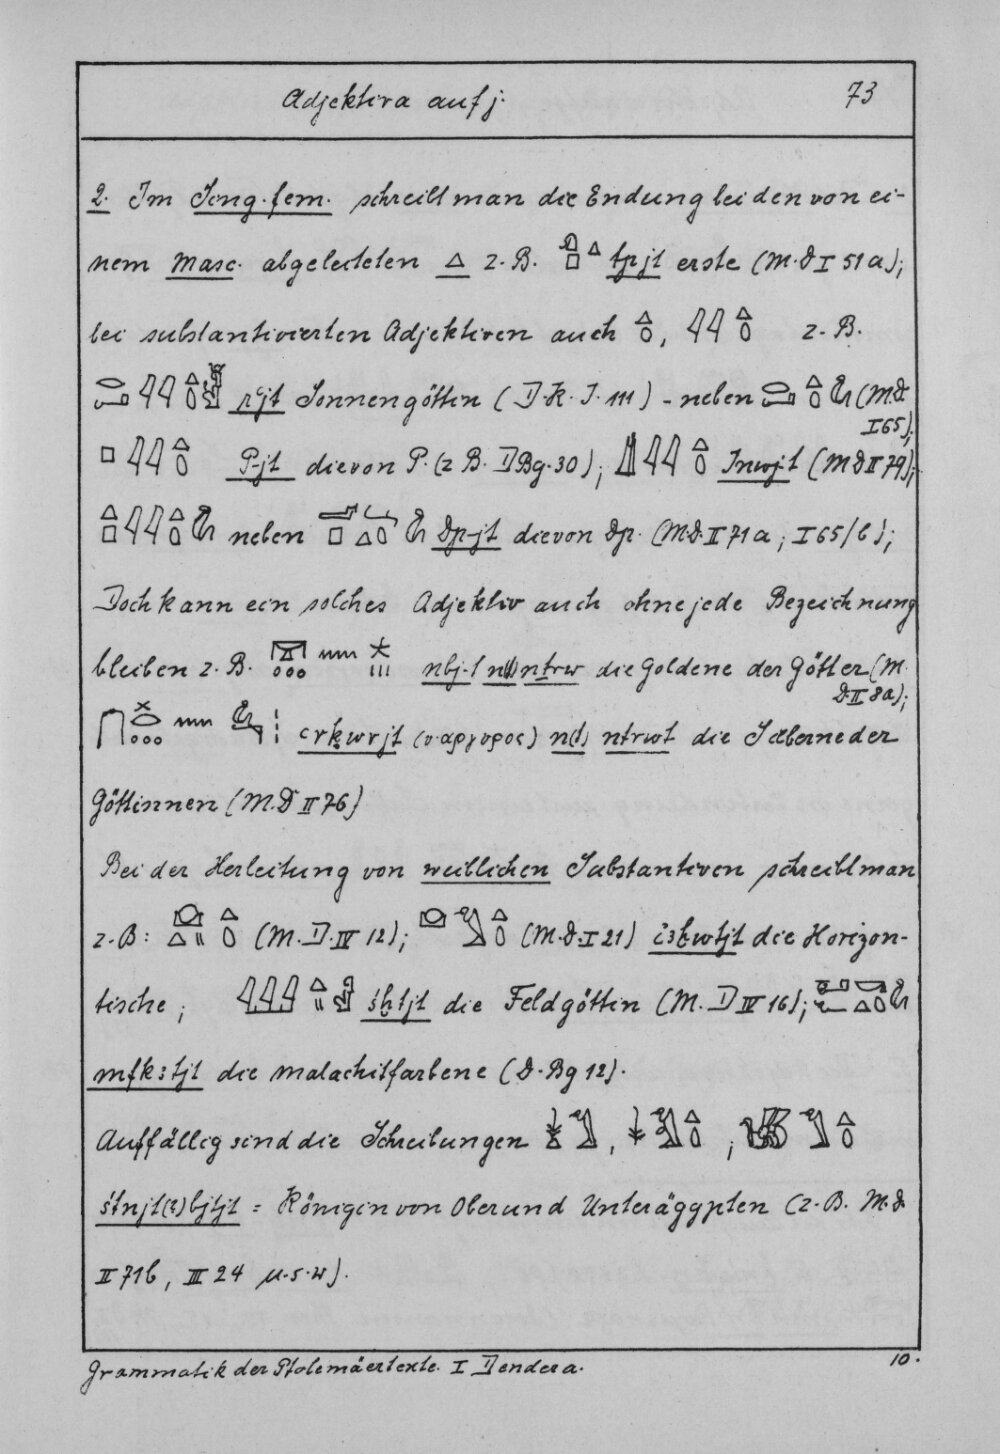 Adjektiva auf j. 73
2. Im Sing. fem. schreibt man die Endung bei den von ei-
nem Masc. abgeleiteten 𓏏 z. B. tpjt erste (M.D I 51a);
bei substantivierten Adjektiven auch , 𓇋𓇋 z. B.
rʿjt Sonnengöttin (D.K.I. 111) - neben (M.D
I 65);
P-jt die von P. (z B. DBg. 30); Inwj-t (M D II 79);
neben Dp-jt die von Dp. (M.D. II 71a ; I 65/b);
Doch kann ein solches Adjektiv auch ohne jede Bezeichnung
bleiben z. B. nbj-t n(t) nṯrw die Goldene der Götter (M.
D. II 8a);
ʿrḳwrjt (ν.αργυρος) n(t) nṯrwt die Silberne der
Göttinnen (M.D II 76)
Bei der Herleitung von weiblichen Substantiven schreibt man
z. B: (M. D. IV 12); (M.D. I 21) iꜣḫwtjt die Horizon-
tische ; śḫtjt die Feldgöttin (M. D IV 16);
mfkꜣtjt die malachitfarbene (D. Bg 12).
Auffällig sind die Schreibungen , ;
śtnjt(?) bjtjt = Königin von Ober und Unterägypten (z. B. M.D
II 71b, III 24 u.s.w).
Grammatik der Ptolemäertexte. I Dendera. 10.